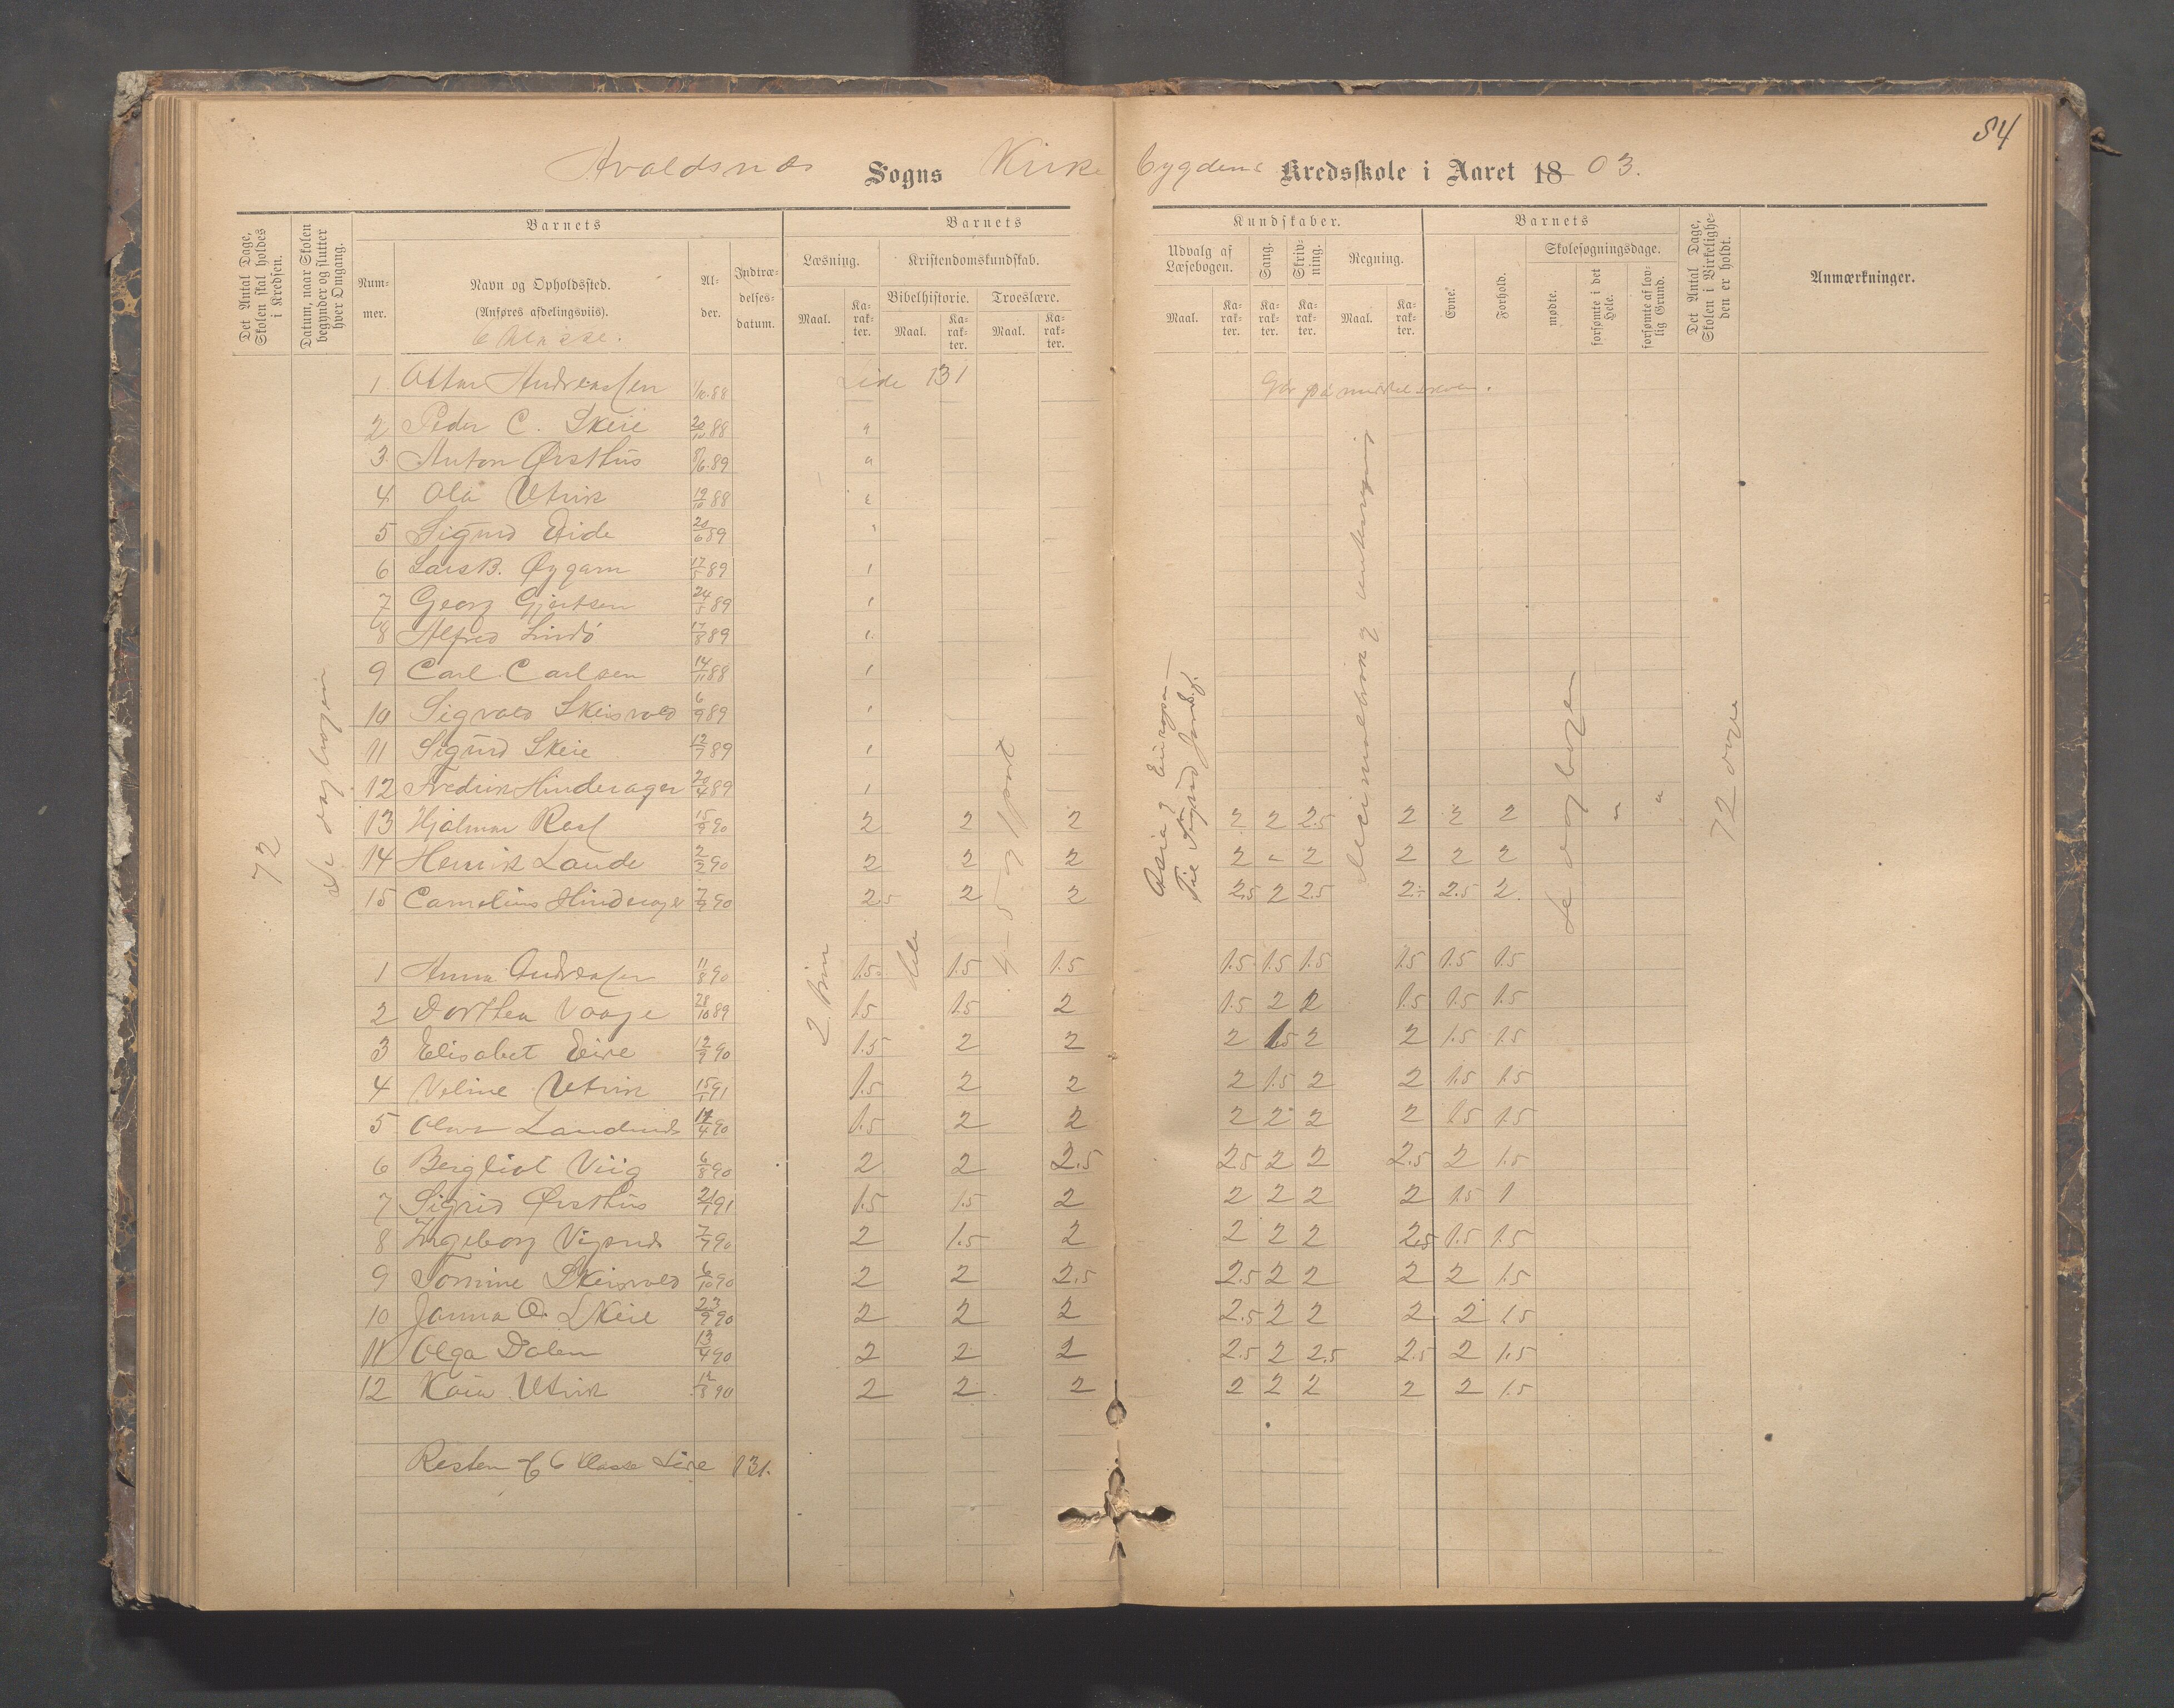 84
Avaldsnes Sogns Kirkebygdens Kredsskole i Aaret 18 03.
Det Antal Dage, Skolen skal holdes i Kredsen.
Datum, naar Skolen begynder og slutter hver Omgang.
Barnets
Num-mer.
Navn og Opholdssted.
(Anføres afdelingsviis).
6 Klasse.
Al-der.
Indtræ-delses-datum.
Barnets
Læsning.
Maal.
Ka-rak-ter.
Kristendomskundskab.
Bibelhistorie.
Maal.
Ka-rak-ter.
Troeslære.
Maal.
Ka-rak-ter.
Kundskaber.
Udvalg af Læsebogen.
Maal.
Ka-rak-ter.
Sang.
Ka-rak-ter.
Skriv-ning.
Ka-rak-ter.
Regning.
Maal.
Ka-rak-ter.
Barnets
Evne.
Forhold.
Skolesøgningsdage.
mødte.
forsømte i det Hele.
forsømte af lov-lig Grund.
Det Antal Dage, Skolen i Virkelighe-den er holdt.
Anmærkninger.
72
Se dagbogen
2. trin
hele
4-5 og 1 part
Asia og Europa —
Til Sigurd Jorsalf.
Se dagbogen
72 dage
1 Ottar Andreassen 1/10 88 Side 131 Går på middelskolen.
2 Peder C. Skeie 20/10 88 "
3 Anton Østhus 8/6 89 "
4 Ola Utvik 19/10 88 "
5 Sigurd Eide 20/6 89 "
6 Lars B. Øygarn 17/5 89 "
7 Georg Gjertsen 24/5 89 "
8 Alfred Lindö 17/8 89 "
9 Carl Carlsen 14/11 88 "
10 Sigvald Skeisvold 6/9 89 "
11 Sigurd Skeie 12/7 89 "
12 Fredrik Hinderager 20/4 89 "
13 Hjalmar Rasf 15/9 90 2 2 2 2 2 2.5 2 2 2 " "
14 Henrik Lande 2/2 90 2 2 2 2 " 2 2 2 2
15 Cornelius Hinderager 7/9 90 2.5 2 2 2.5 2 2.5 2 2.5 2.
1 Anna Andreasen 11/8 90 1.5 1.5 1.5 1.5 1.5 1.5 1.5 1.5 1.5
2 Dorthea Vaage 28/10 89 1.5 1.5 2 1.5 2 2 1.5 1.5 1.5
3 Elisabet Eide 12/9 90 1.5 2 2 2 1.5 2 2 1.5 1.5
4 Veline Utvik 15/1 91 1.5 2 2 2 1.5 2 2 1.5 1.5
5 Olava Landnds 17/4 90 1.5 2 2 2 2 2 2 1.5 1.5
6 Bergliot Viig 6/8 90 2 2 2.5 2.5 2 2 2.5 2 1.5
7 Sigrid Østhus 21/1 91 1.5 1.5 2 2 2 2 2 1.5 1
8 Ingeborg Vignes 7/7 90 2 1.5 2 2 2 2 2.5 1.5 1.5
9 Tomine Skeisvold 6/10 90 2 2 2.5 2.5 2 2 2 2 1.5
10 Janna O. Skeie 23/9 90 2 2 2 2.5 2 2 2 2 1.5
11 Olga Dalen 13/4 90 2 2 2 2.5 2 2.5 2.5 2 1.5
12 Kaia Utvik 12/8 90 2 2 2 2 2 2 2 2 1.5
Resten af 6 klasse Side 131.